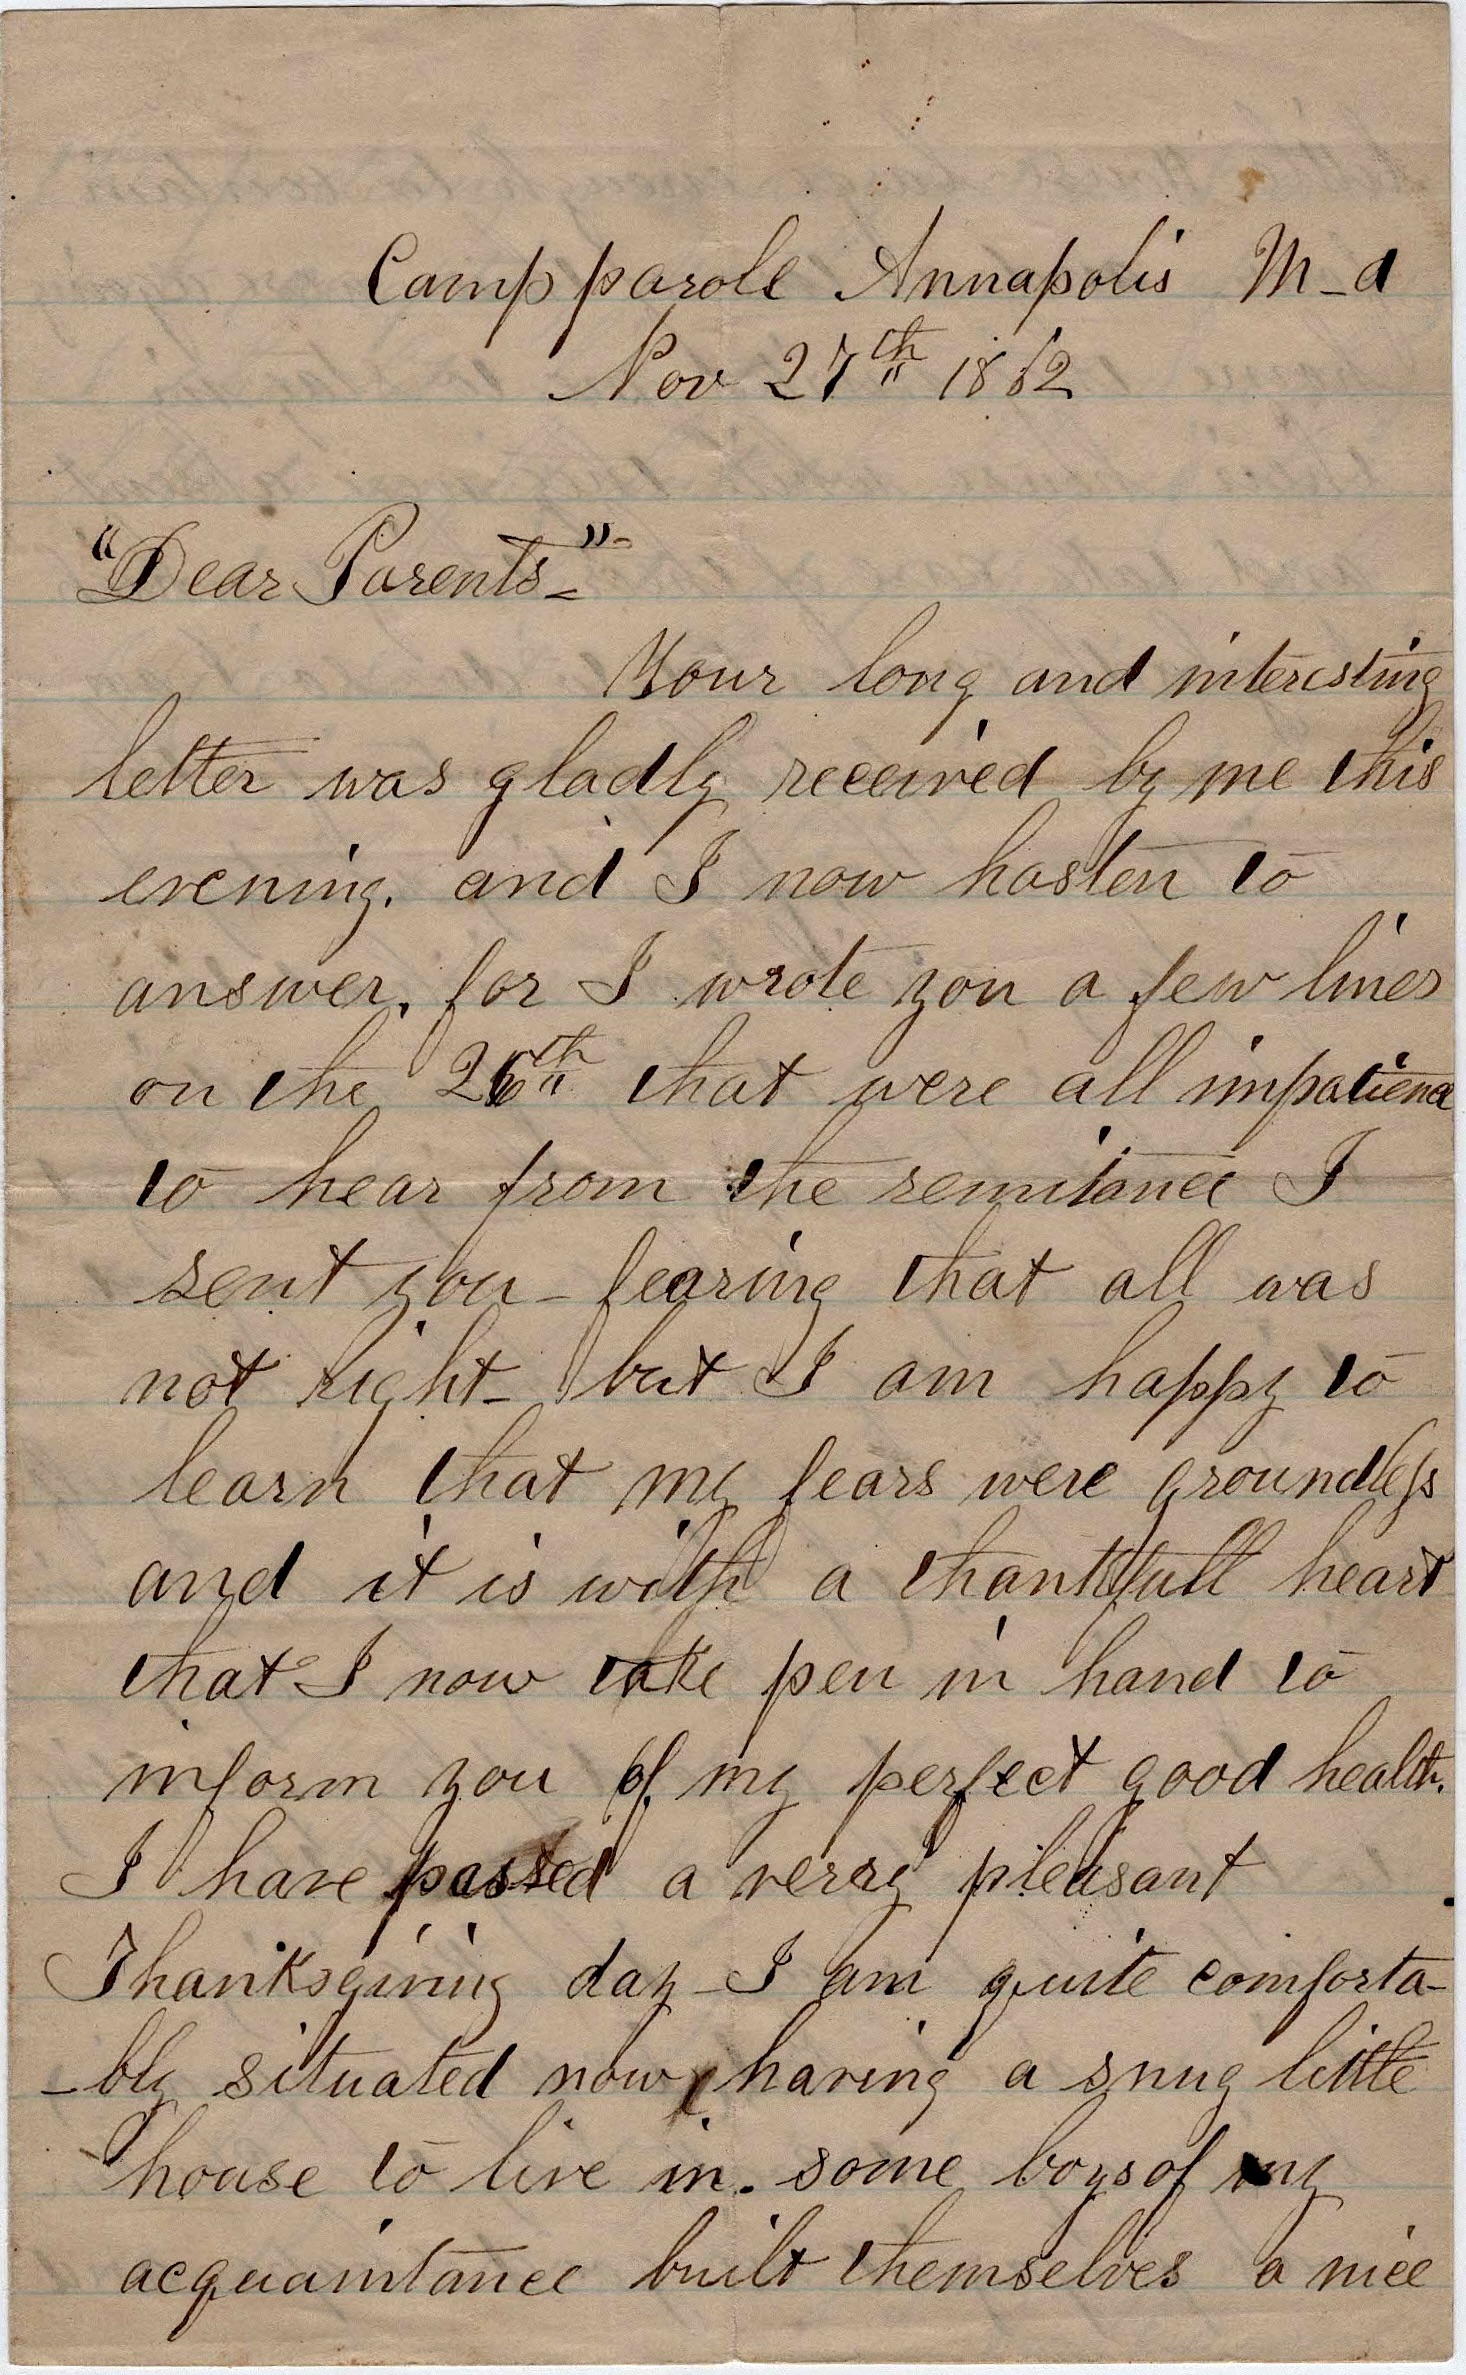 Camp parole Annapolis M_d
Nov 27th" 1862
"Dear Parents_"-
Your long and interesting
letter was gladly received by me this
evening. and I now hasten to
answer, for I wrote you a few lines
on the 26th" that were all impatience
to hear from the remitance I
sent you_ fearing that all was
not right_ but I am happy to
learn that my fears were groundless
and it is with a thankfull heart
that I now take pen in hand to
inform you of my perfect good health.
I have passed a verry pleasant
Thanksgiving day_ I am quite comforta-
-bly situated now, having a snug little
house to live in. some boys of my
acquaintance built themselves a nice